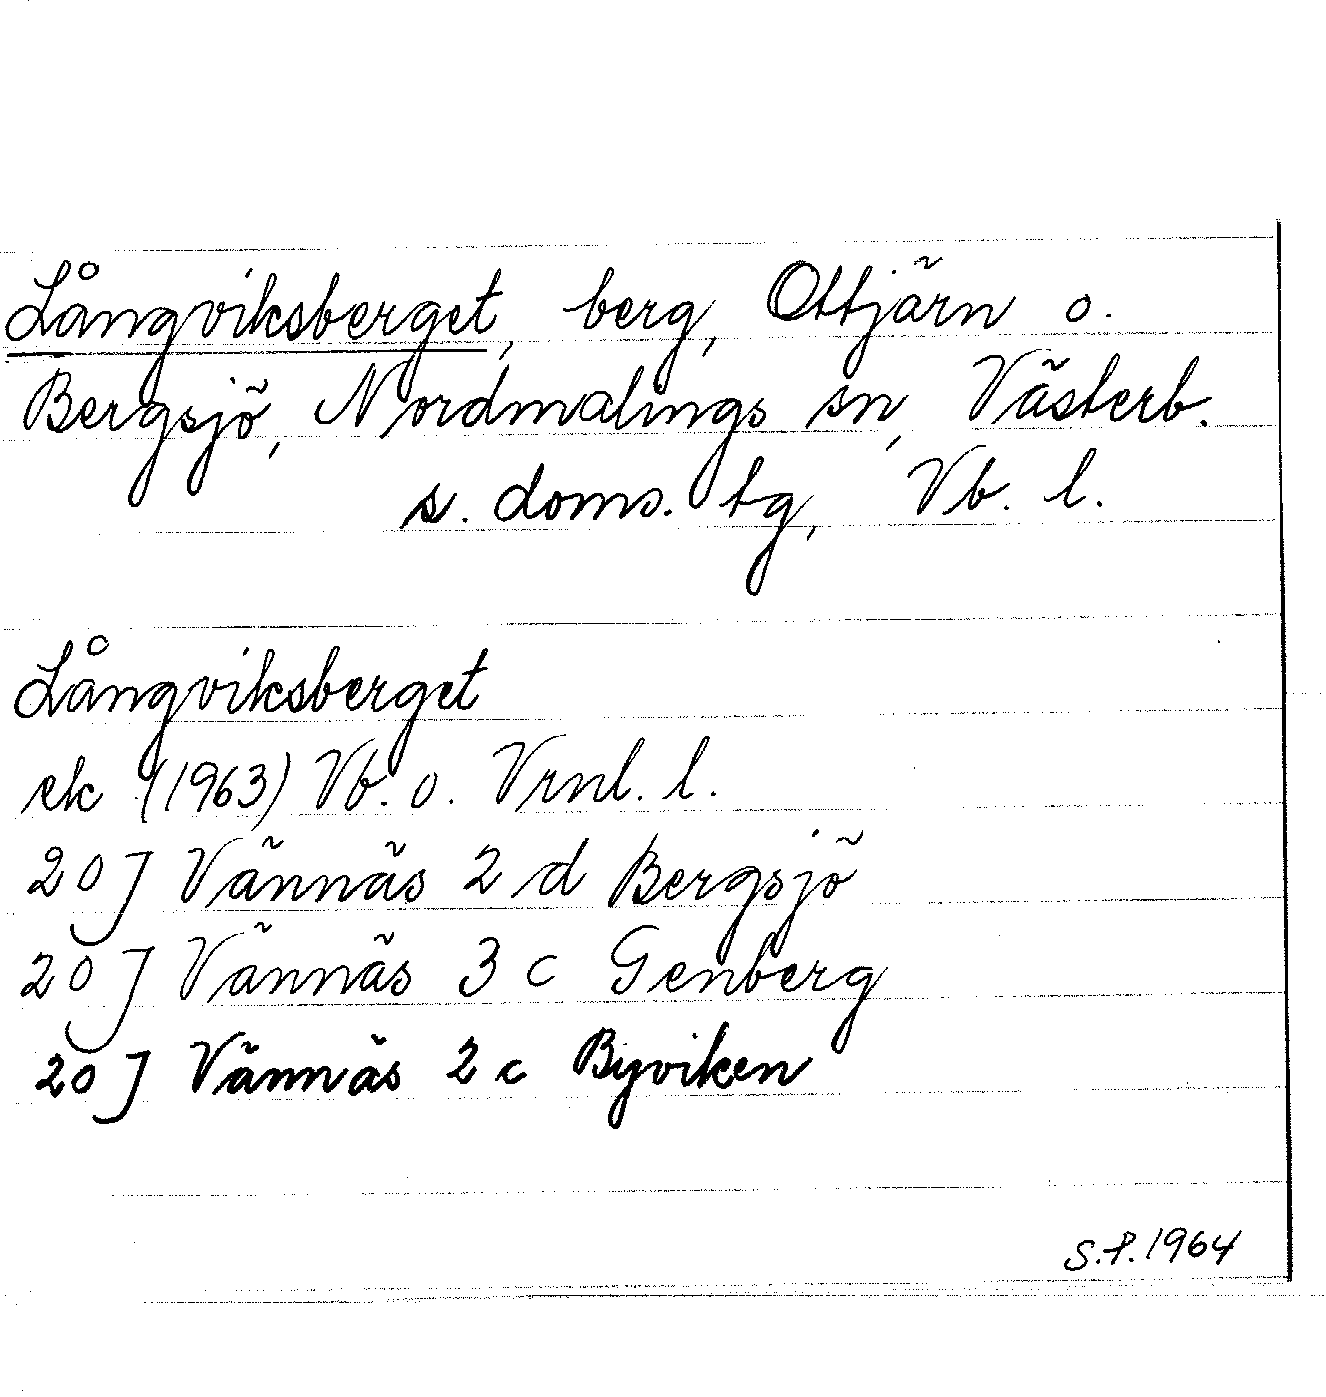 Långviksberget, berg, Ottjärn o.
Bergsjö, Nordmalings sn, Västerb.
s. doms. tg, Vb. l.
Långviksberget
ek (1963) Vb. o. Vrnl. l.
20 J Vännäs 2 d Bergsjö
20 J Vännäs 3 c Genberg
20 J Vännäs 2 c Byviken
S.P. 1964